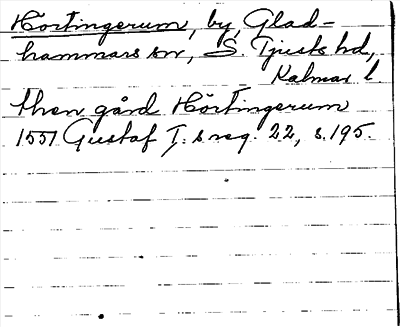 Hortingerum, by, Glad=
hammars sn, S. Tjusts hd,
Kalmar l.
then gård Hörtingerum
1551 Gustaf I:s reg. 22, s. 195.